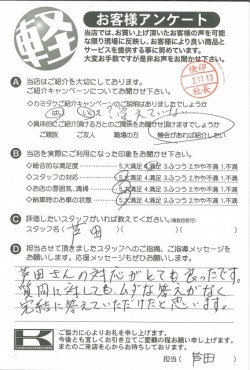 軽
お客様アンケート
当店では、お買い上げ頂いたお客様の声を可能
な限り現場に反映し、お客様により良い商品と
サービスを提供する事に努めています。
大変お手数ですが是非お声をお聞かせ下さい。
A 当店はご紹介を大切にしております。
ご紹介キャンペーンについてお聞かせ下さい。
◇カミタケご紹介キャンペーンのご説明はありましたでしょうか
◇具体的にご紹介頂ける方とのご関係をお聞かせ頂けますでしょうか
ご親族 ご友人 職場の方 機会があれば紹介したい
B 当店を実際にご利用になった印象をお聞かせ下さい。
◇総合的な満足度 5.大満足 4.満足 3.ふつう 2.やや不満 1.不満
◇スタッフの対応 5.大満足 4.満足 3.ふつう 2.やや不満 1.不満
◇お店の雰囲気、清掃 5.大満足 4.満足 3.ふつう 2.やや不満 1.不満
◇納車時のお車の状態 5.大満足 4.満足 3.ふつう 2.やや不満 1.不満
C 評価したいスタッフがいれば教えてください。(複数回答可)
スタッフ名( 芦田 )
D 担当させて頂きましたスタッフへのご指摘、ご指導、応援
メッセージをお願いします。
芦田さんの対応がとても良かったです。
質問に対してもムダな答えがなく
完結に答えていただけたと思います。
K
ご協力に心よりお礼を申し上げます。
今後とも宜しくお引き立てご愛顧の程お願い申し上げます。
またのご来店を心からお待ちしております。
担当( 芦田 )